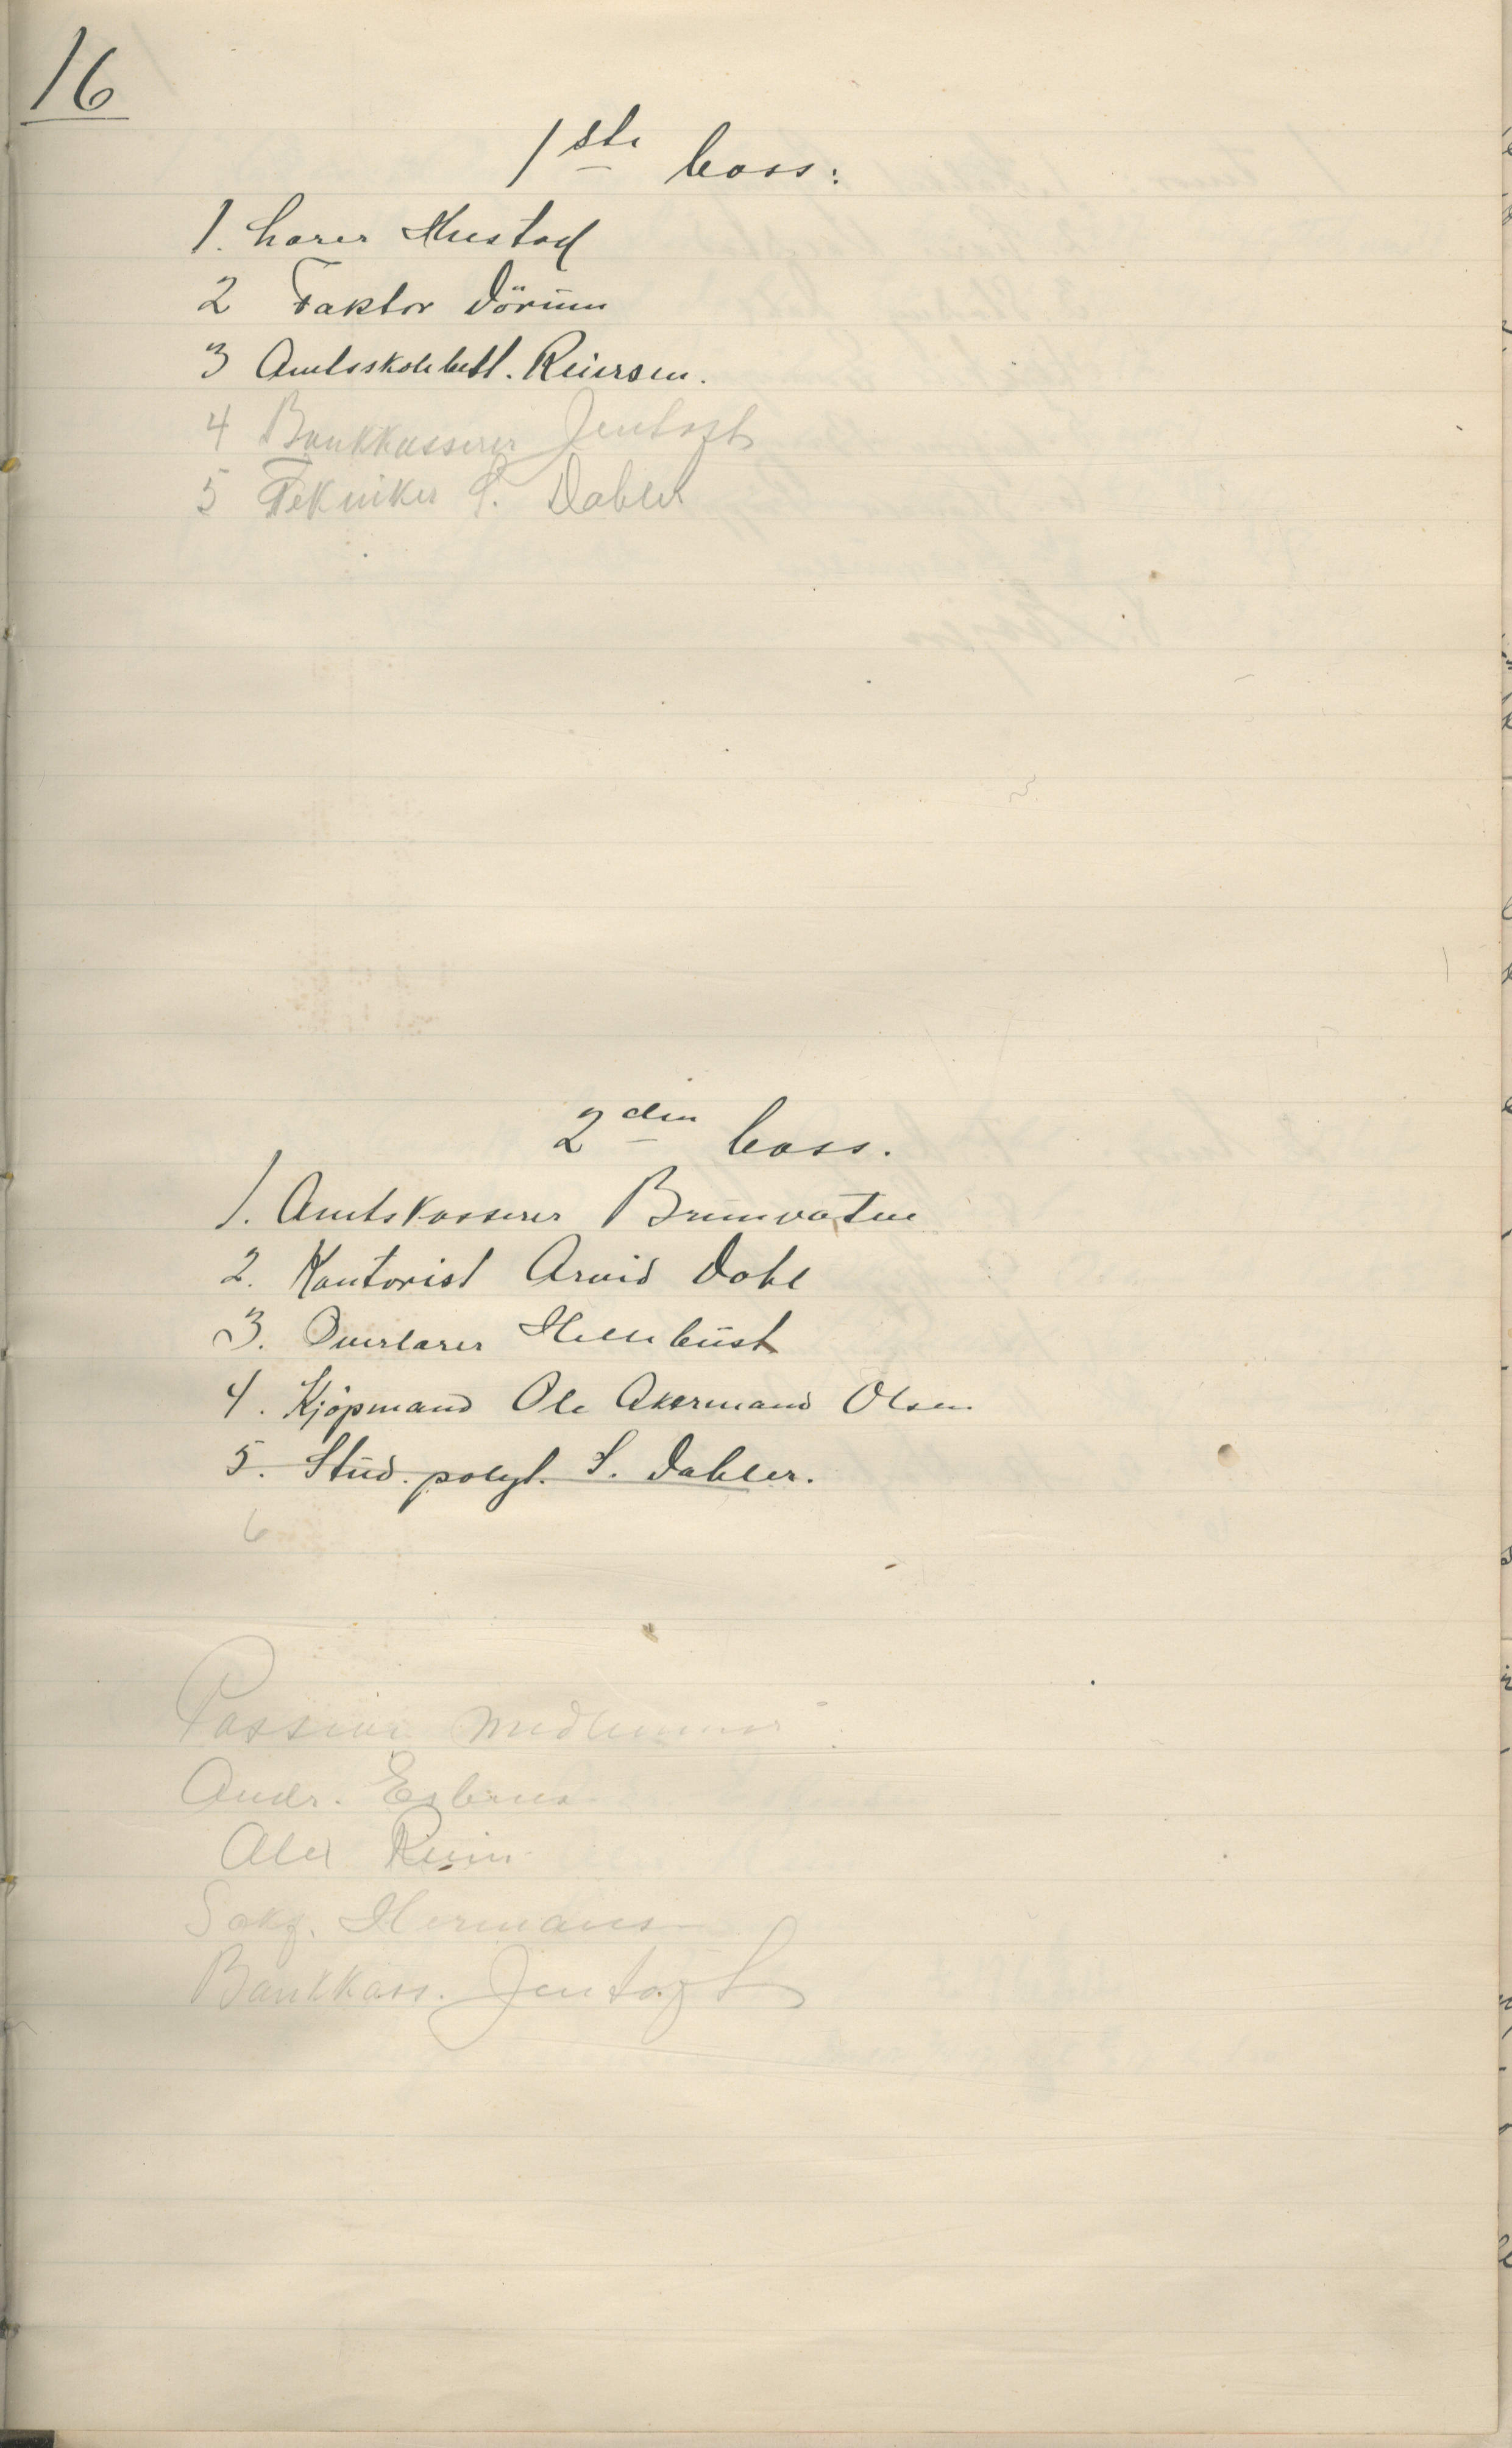 16
1ste bass:
1. Lærer Mustad
2 Faktor Dörum
3 Amtsskolebest. Reiersen.
4 Bankkasserer Jentoft
5 Tekniker S. Dahler
2den bass.
1. Amtskasserer Brunvatne
2. Kontorist Arvid Dahl
3. Overlærer Hellebust
4. Kjöpmand Ole Akermand Olsen
5. Stud. polyt. S. Dahler.
6
Passive medlemmer:
Andr.
Alex
Sakf. Hermans
Bankkass. Jentoft